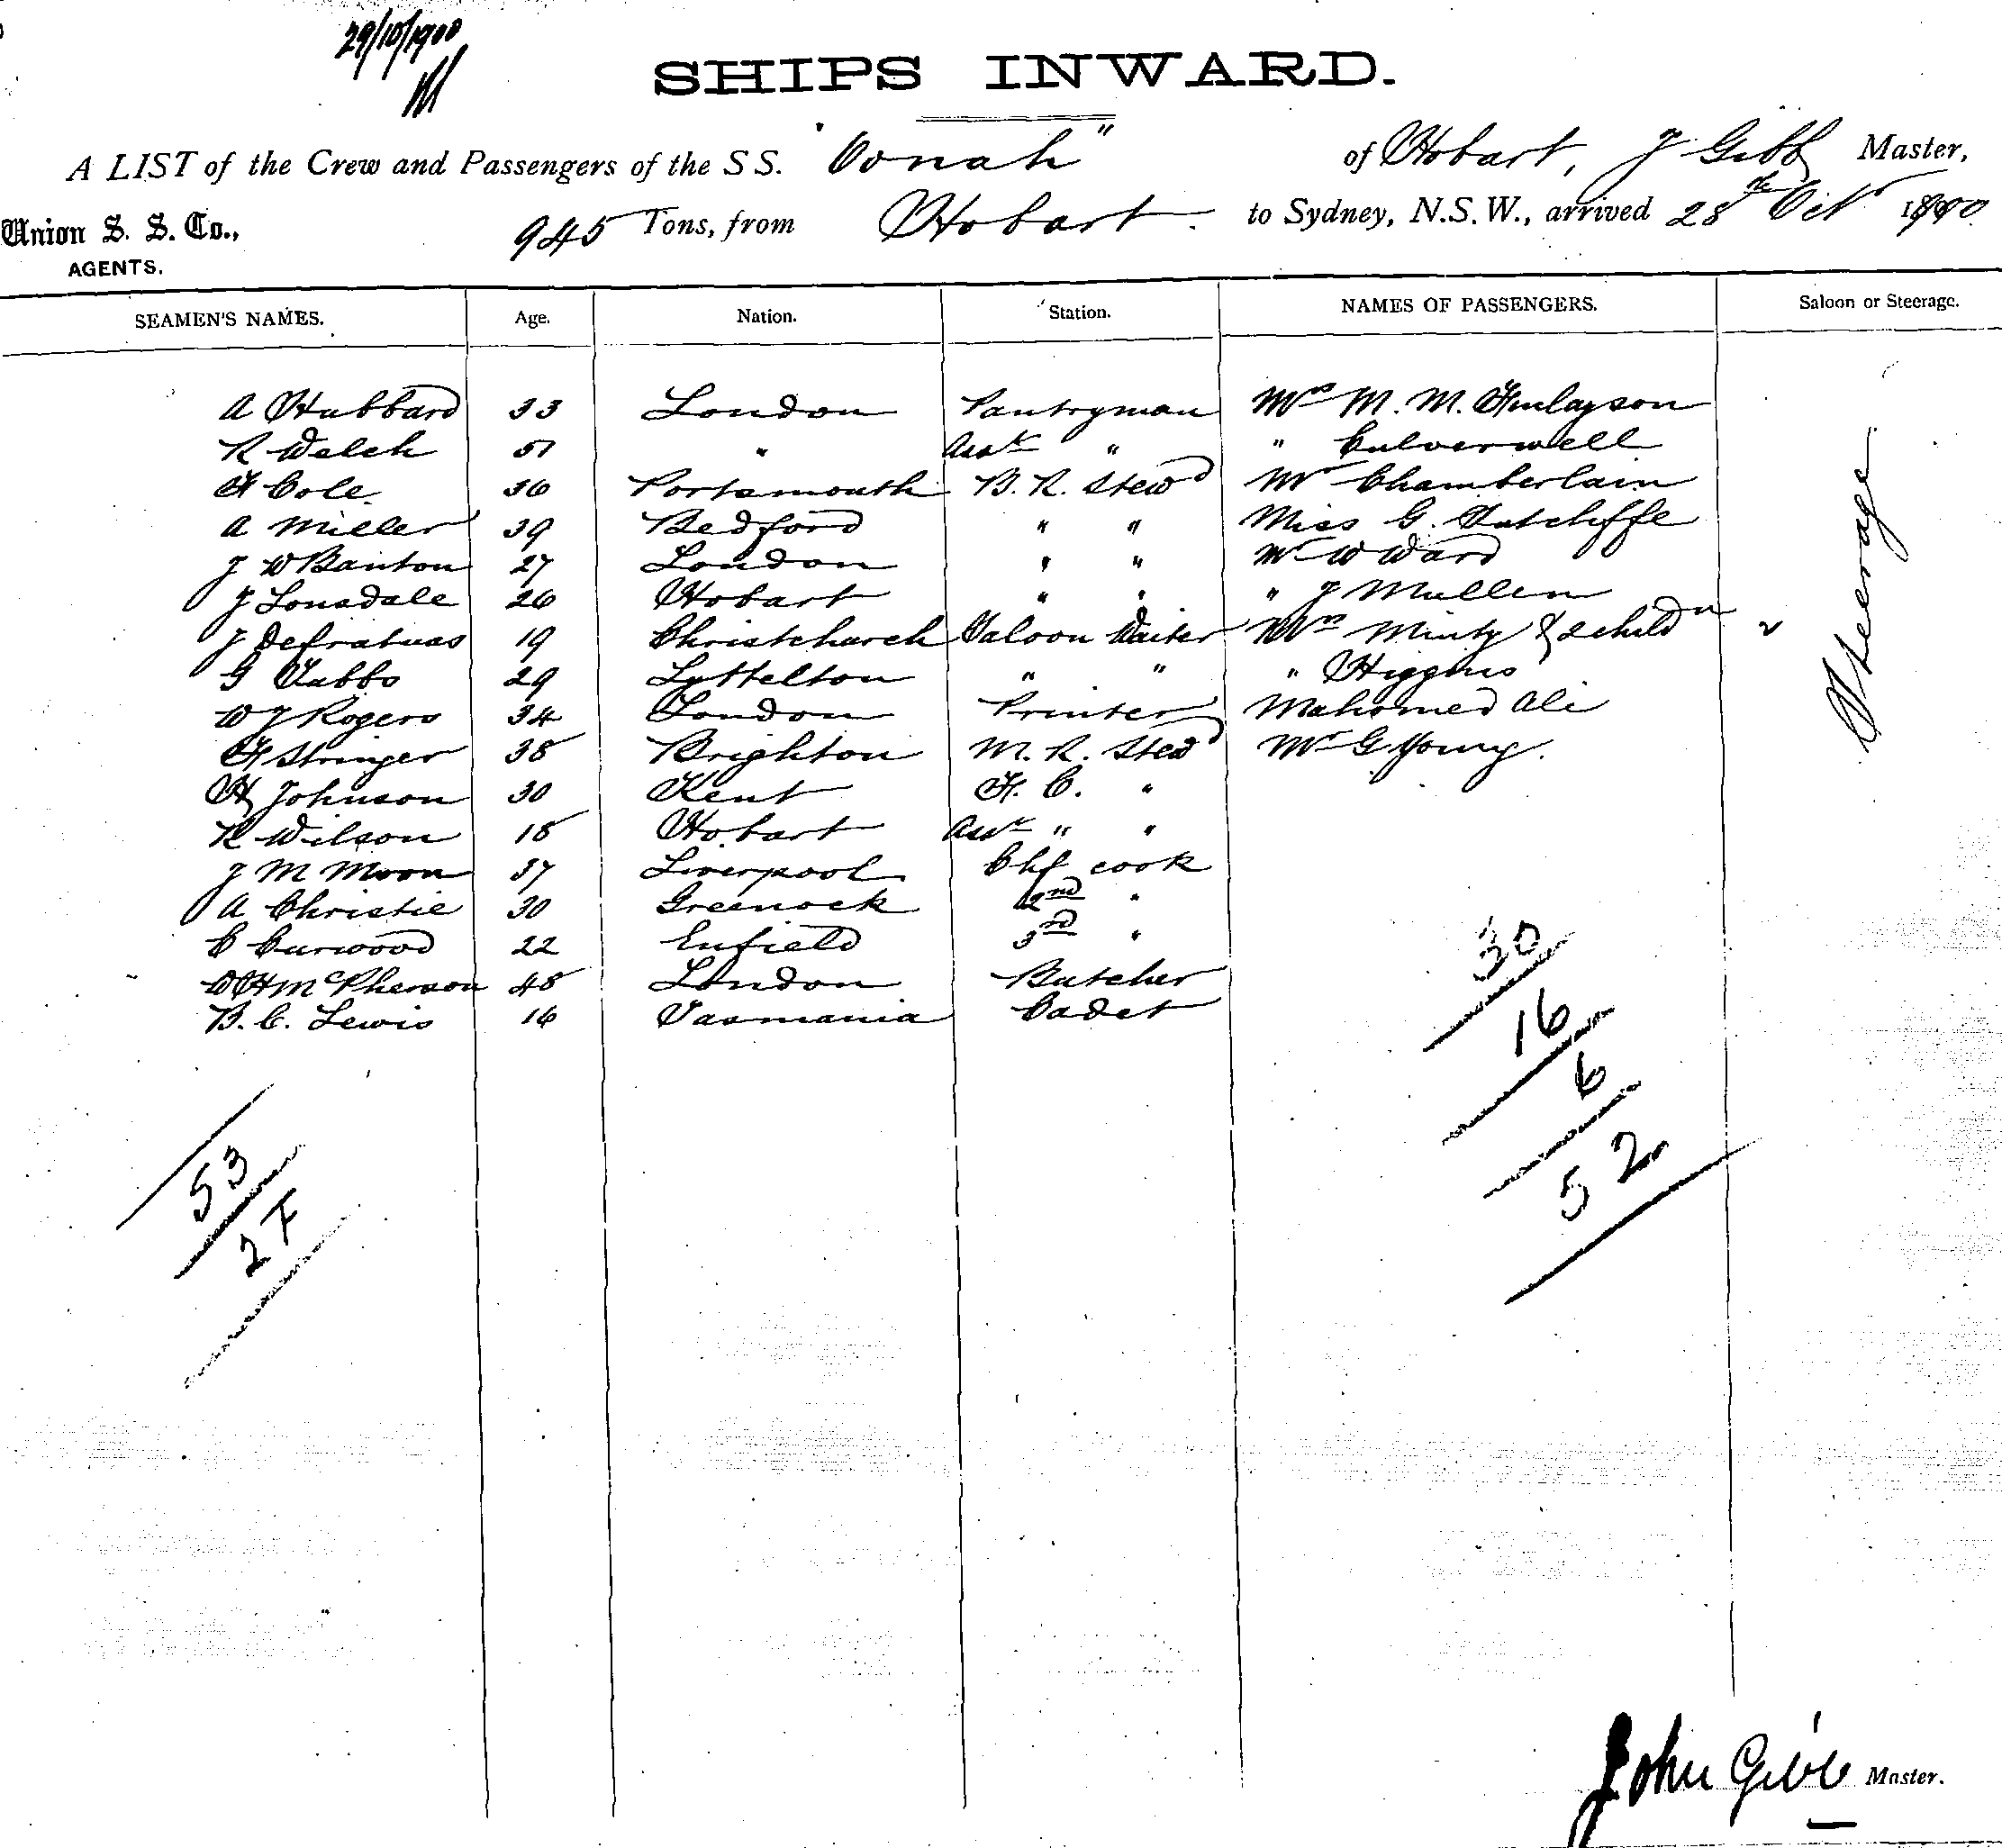 29/10/1900
SHIPS INWARD.
A LIST of the Crew and Passengers of the S S. "Oonah" of Hobart, J Gibb Master,
Union S. S. Co., 945 Tons, from Hobart to Sydney, N.S.W., arrived 28th Oct 1900
AGENTS.
SEAMEN'S NAMES. Age. Nation. Station. NAMES OF PASSENGERS. Saloon or Steerage.
A Hubbard 33 London Pantryman Mrs M. M. Finlayson
R Welch 51 " Asst " " Culverwell
F Cole 36 Portsmouth B. R. Stewd Mr Chamberlain
A Miller 39 Bedford " " Miss G. Sutcliffe
J W Banton 27 London " " Mr W Ward
J Lonsdale 26 Hobart " " " J Mullen
J Defratuas 19 Christchurch Saloon Waiter Mrs Minty & 2 childn 2
G Tubbs 29 Lyttelton " " " Higgins
W J Rogers 34 London Printer Mahomed Ali
F Stringer 38 Brighton M. R. Stewd Mr G Young.
H Johnson 30 Kent F. C. "
R Wilson 18 Hobart Asst " "
J M Moon 37 Liverpool Chf cook
A Christie 30 Greenock 2nd "
C Curwood 22 Enfield 3rd "
D H McPherson 48 London Butcher
B. C. Lewis 16 Tasmania Cadet
Steerage
30
16
6
52
53
27
John Gibb Master.